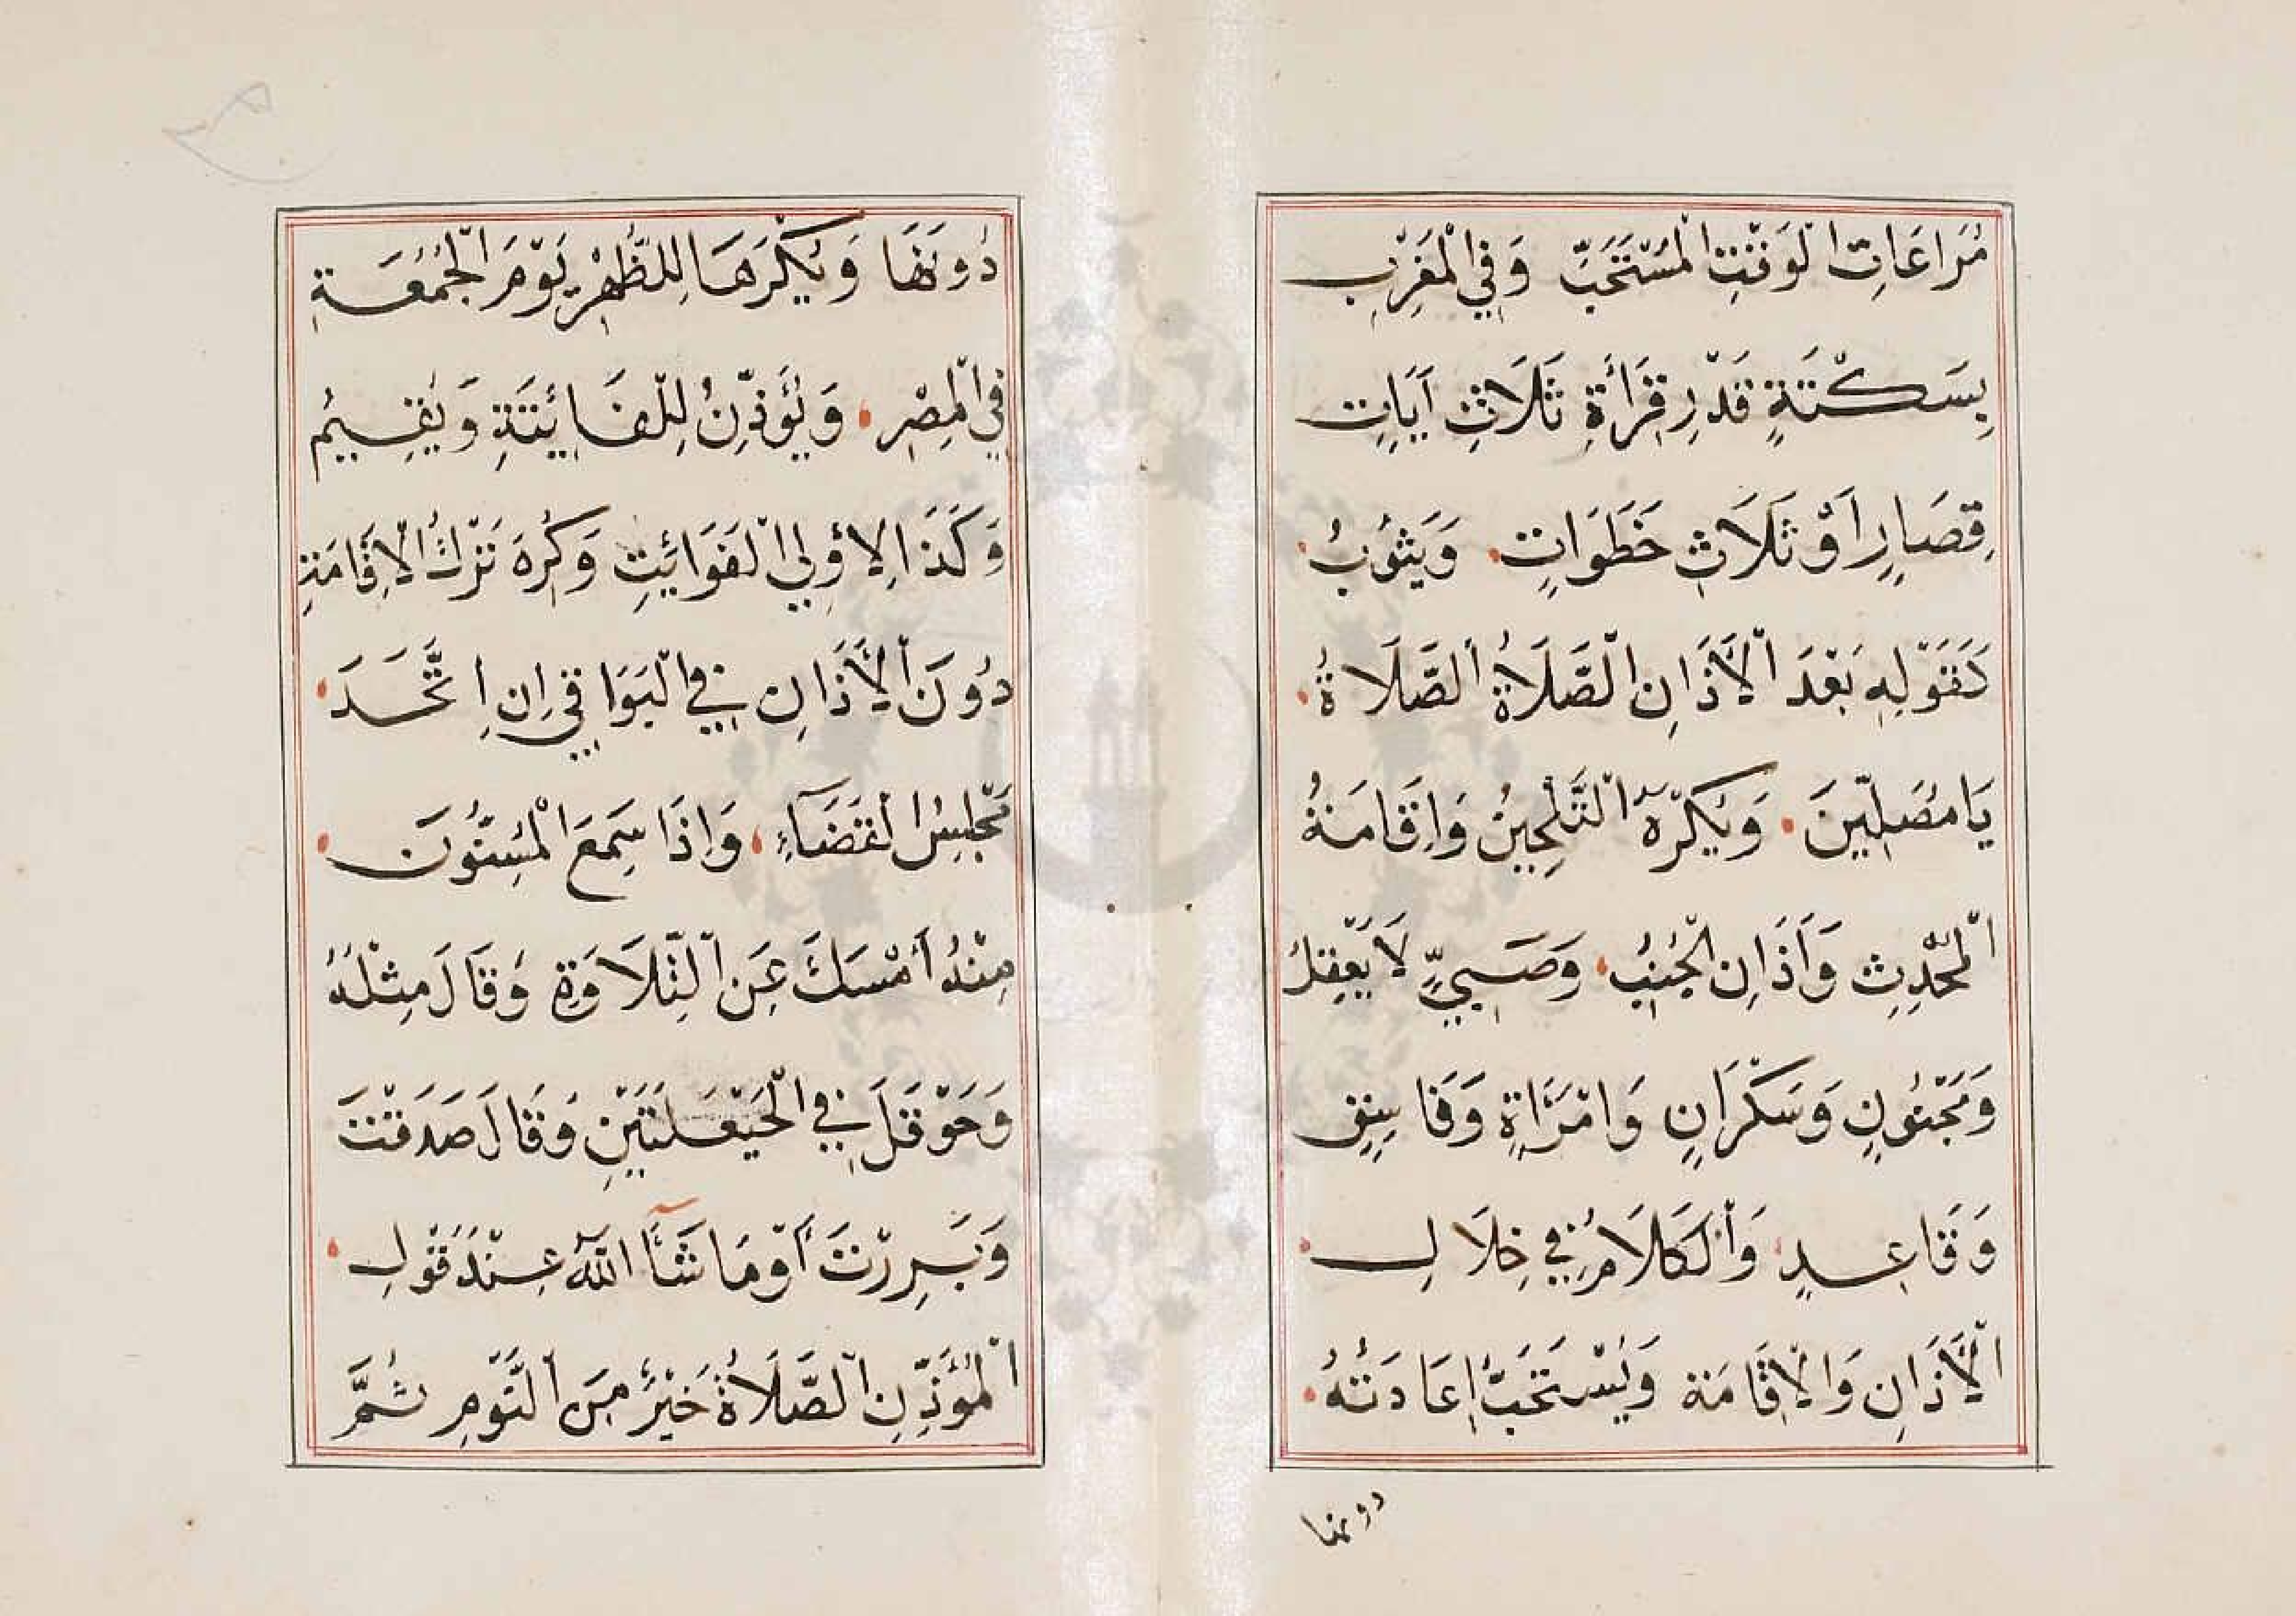 مُرَاعَاتِ الْوَقْتِ الْمُسْتَحَبِّ وَفِي الْمَغْرِبِ
بِسَكْتَةٍ قَدْرِ قِرَأَةِ ثَلَاثِ آيَاتٍ
قِصَارٍ اَوْ ثَلَاثِ خَطَوَاتٍ وَيَثُوبُ
كَقَوْلِهِ بَعْدَ الْأَذَانِ الصَّلَاةُ الصَّلَاةُ
يَا مُصَلِّينَ وَيُكْرَهُ التَّلْحِينُ وَاِقَامَةُ
الْمُحْدِثِ وَاَذَانِ الْجُنُبِ وَصَبِيٍّ لَا يَعْقِلُ
وَمَجْنُونٍ وَسَكْرَانٍ وَامْرَاَةٍ وَفَاسِقٍ
وَقَاعِدٍ وَالْكَلَامُ فِي خِلَالِ
الْأَذَانِ وَالْاِقَامَة وَيُسْتَحَبُّ اِعَادَتُهُ
دونها
دُونَهَا وَيُكْرَهَا لِلظُّهْرِ يَوْمَ الْجُمُعَةِ
فِي الْمِصْرِ وَيُؤَذِّنُ لِلْفَائِتَةِ وَيُقِيمُ
وَكَذَا لِاُولِي الْفَوَائِتِ وَكُرِهَ تَرْكُ الْاِقَامَةِ
دُونَ الْأَذَانِ فِي الْبَوَاقِي اِن اِتَّحَدَ
مَجْلِسُ الْقَضَاءِ وَاِذَا سَمِعَ الْمَسْنُونَ
مِنْهُ أَمْسَكَ عَنِ التِّلَاوَةِ وَقَالَ مِثْلَهُ
وَحَوْقَلَ فِي الْحَيْعَلَتَيْنِ وَقَالَ صَدَقْتَ
وَبَرِرْتَ أَوْ مَا شَآَ اللّٰهُ عِنْدَ قَوْلِ
الْمُؤَذِّنِ الصَّلَاةُ خَيْرٌ مِنَ النَّوْمِ ثُمَّ